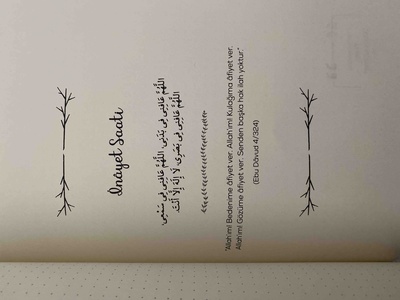 İnâyet Saati
اللَّهُمَّ عَافِنِي فِي بَدَنِي، اللَّهُمَّ عَافِنِي فِي سَمْعِي،
اللَّهُمَّ عَافِنِي فِي بَصَرِي، لَا إِلَهَ إِلَّا أَنْتَ.
"Allah'ım! Bedenime âfiyet ver. Allah'ım! Kulağıma âfiyet ver.
Allah'ım! Gözüme âfiyet ver. Senden başka hak ilah yoktur."
(Ebu Dâvud 4/324)